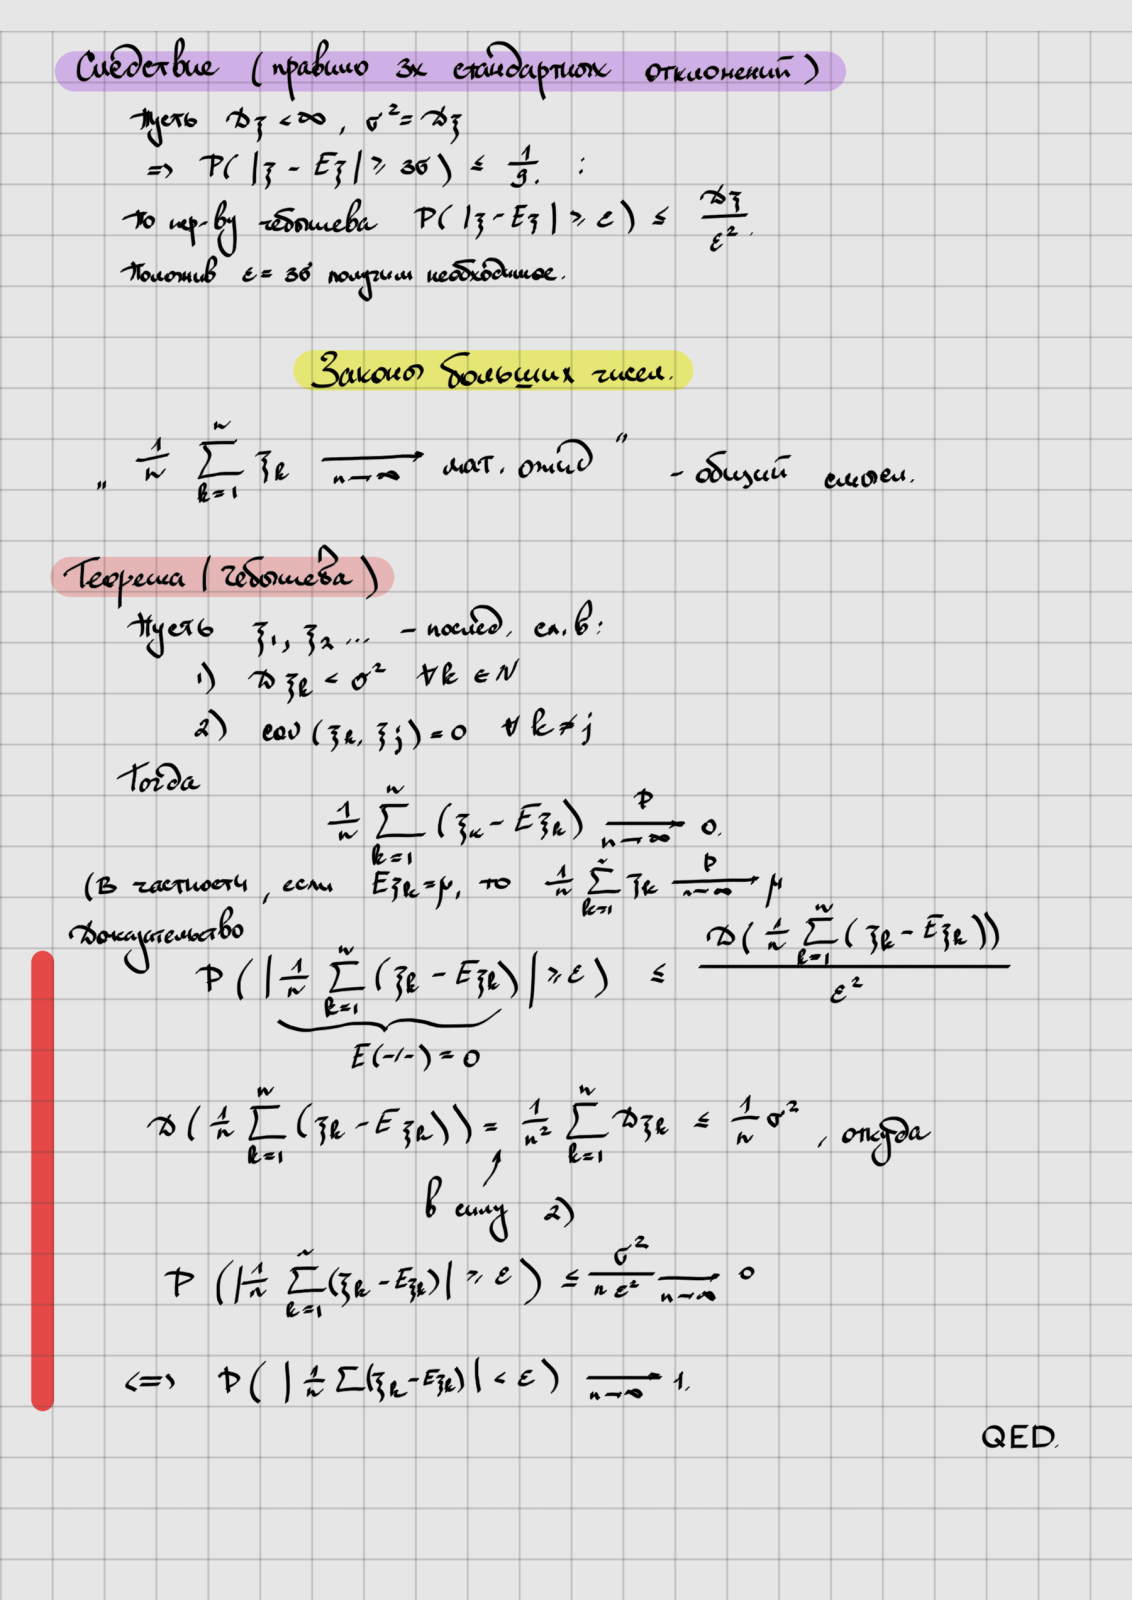 Следствие (правило 3х стандартных отклонений)
Пусть Dξ < ∞, σ² = Dξ
=> P( |ξ - Eξ| ≥ 3σ ) ≤ 1/9. :
По нер-ву Чебышева P( |ξ - Eξ| ≥ ε ) ≤ Dξ/ε².
Положив ε = 3σ получим необходимое.
Законы больших чисел.
„ 1/n ∑_{k=1}^{n} ξ_k →_{n→∞} мат. ожид " - общий смысл.
Теорема (Чебышева)
Пусть ξ₁, ξ₂ ... - послед. сл.в:
1) Dξ_k < σ² ∀k ∈ N
2) cov (ξ_k, ξ_j) = 0 ∀ k ≠ j
Тогда
1/n ∑_{k=1}^{n} (ξ_k - Eξ_k) →^{P}_{n→∞} 0.
(В частности, если Eξ_k = μ, то 1/n ∑_{k=1}^{n} ξ_k →^{P}_{n→∞} μ
Доказательство
P ( | 1/n ∑_{k=1}^{n} (ξ_k - Eξ_k) | ≥ ε ) ≤ D( 1/n ∑_{k=1}^{n} ( ξ_k - Eξ_k ))/ε²
E(-//-) = 0
D( 1/n ∑_{k=1}^{n} (ξ_k - Eξ_k)) = 1/n² ∑_{k=1}^{n} Dξ_k ≤ 1/n σ² , откуда
в силу 2)
P ( | 1/n ∑_{k=1}^{n} (ξ_k - Eξ_k) | ≥ ε ) ≤ σ²/nε² →_{n→∞} 0
<=> P( | 1/n ∑(ξ_k - Eξ_k) | < ε ) →_{n→∞} 1.
QED.